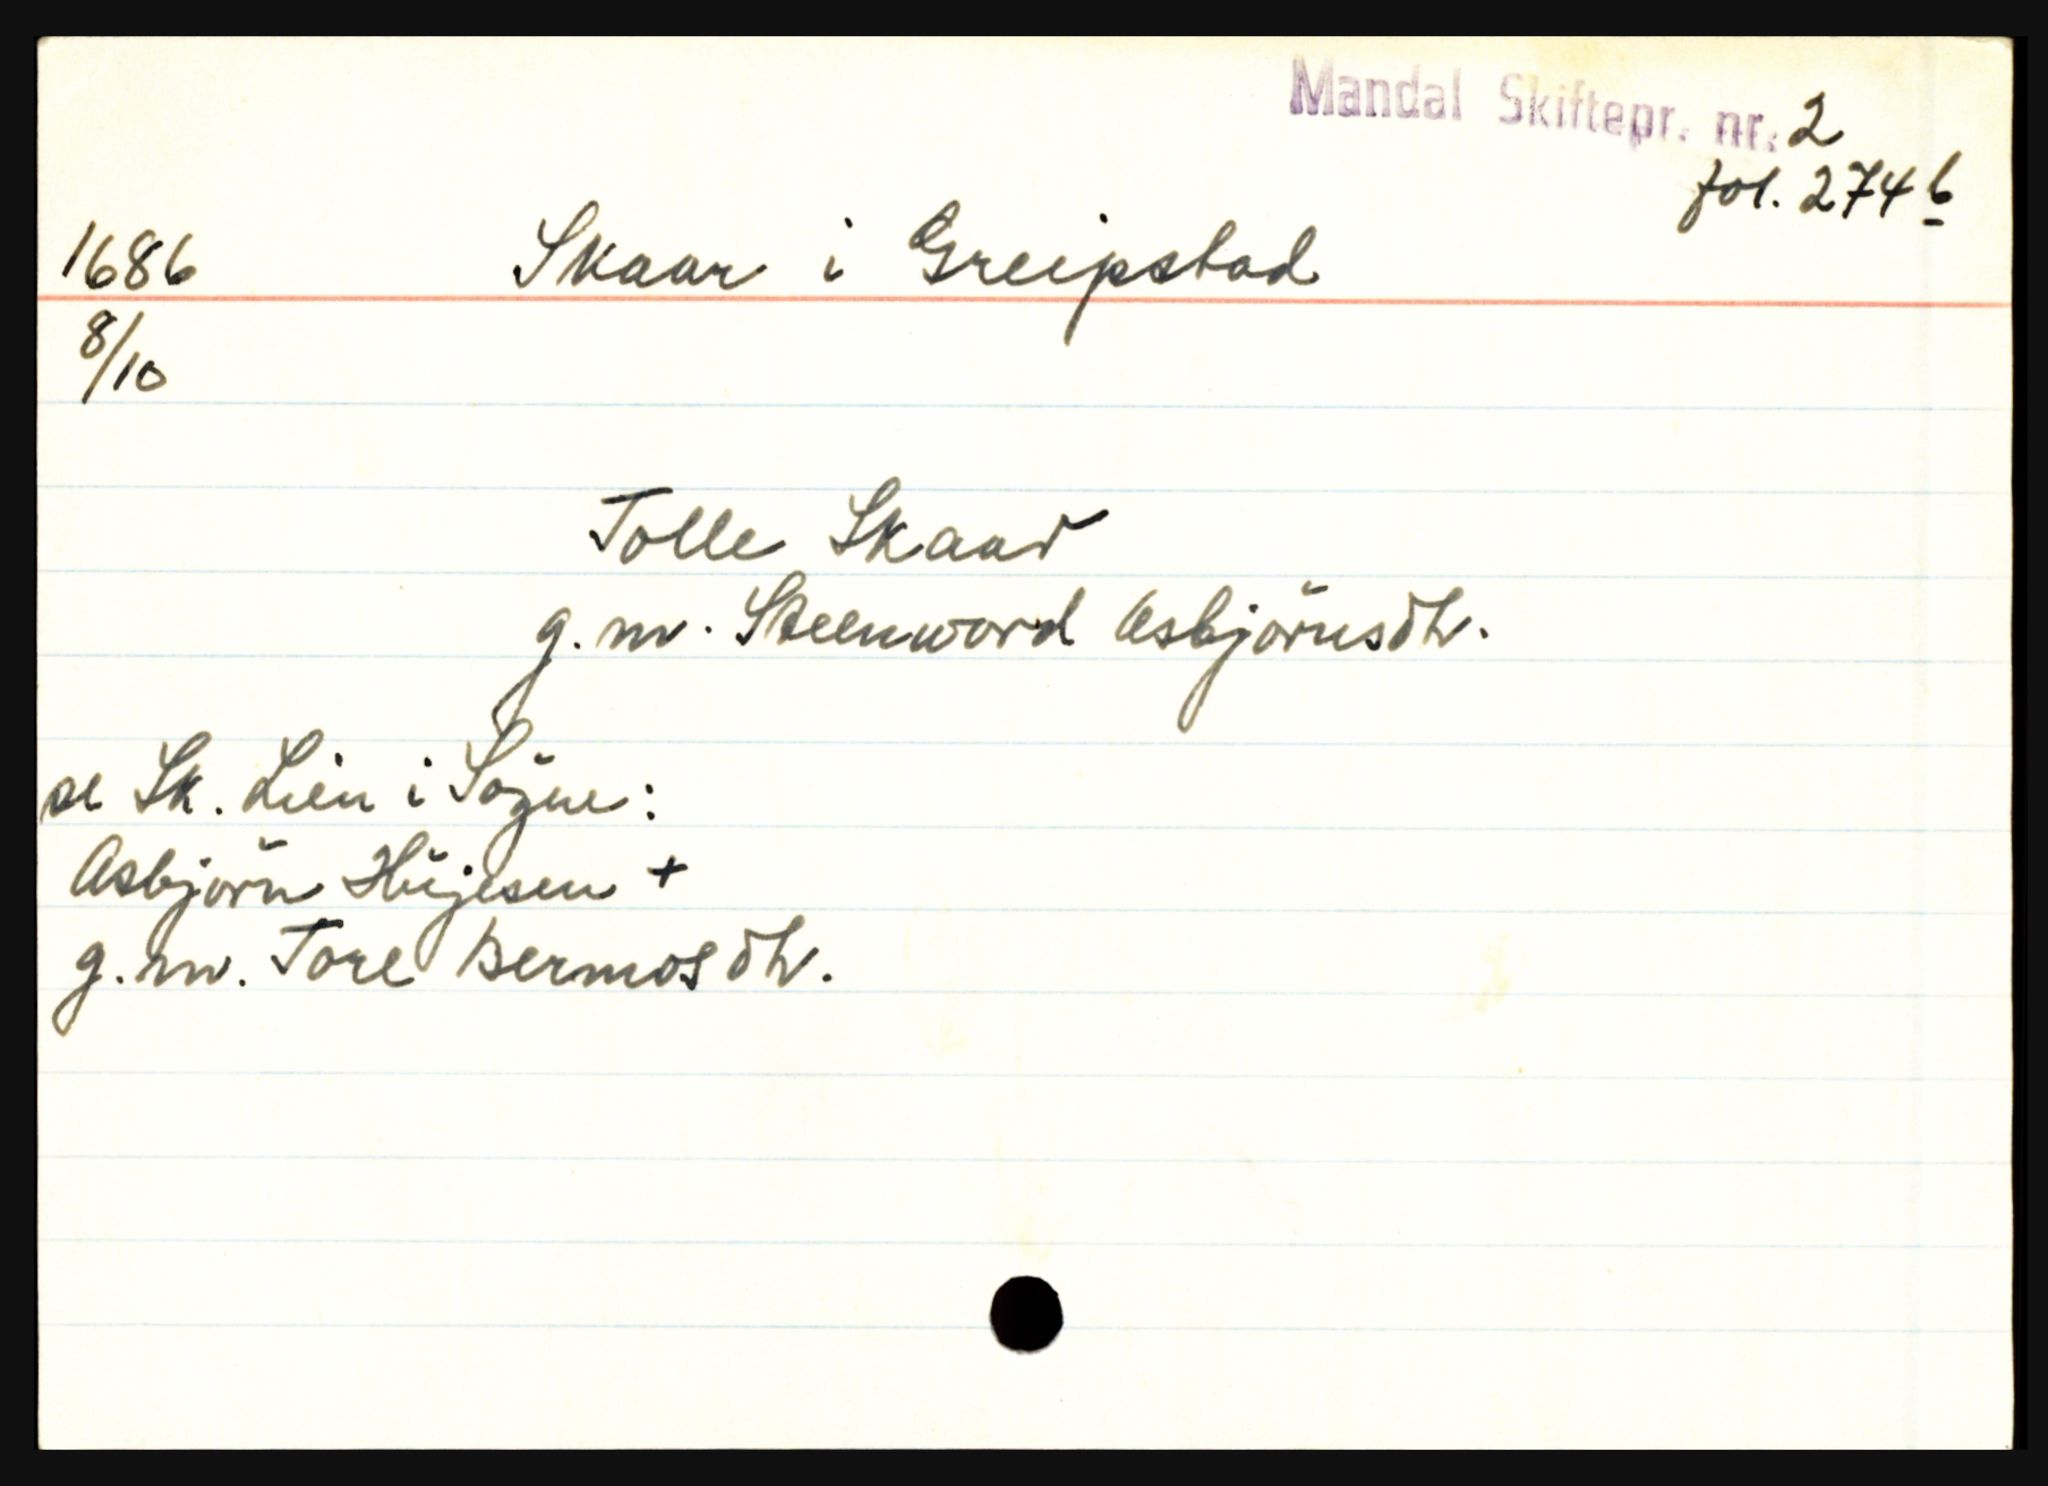 Mandal Skiftepr. nr. 2
fol. 274 b
1686 Skaar i Greipstad
8/10
Tolle Skaar
g. m. Steenword Asbjörnsdtr.
se Sk. Lien i Sögne:
Asbjörn Hüjesen +
g. m. Tore Bermosdtr.